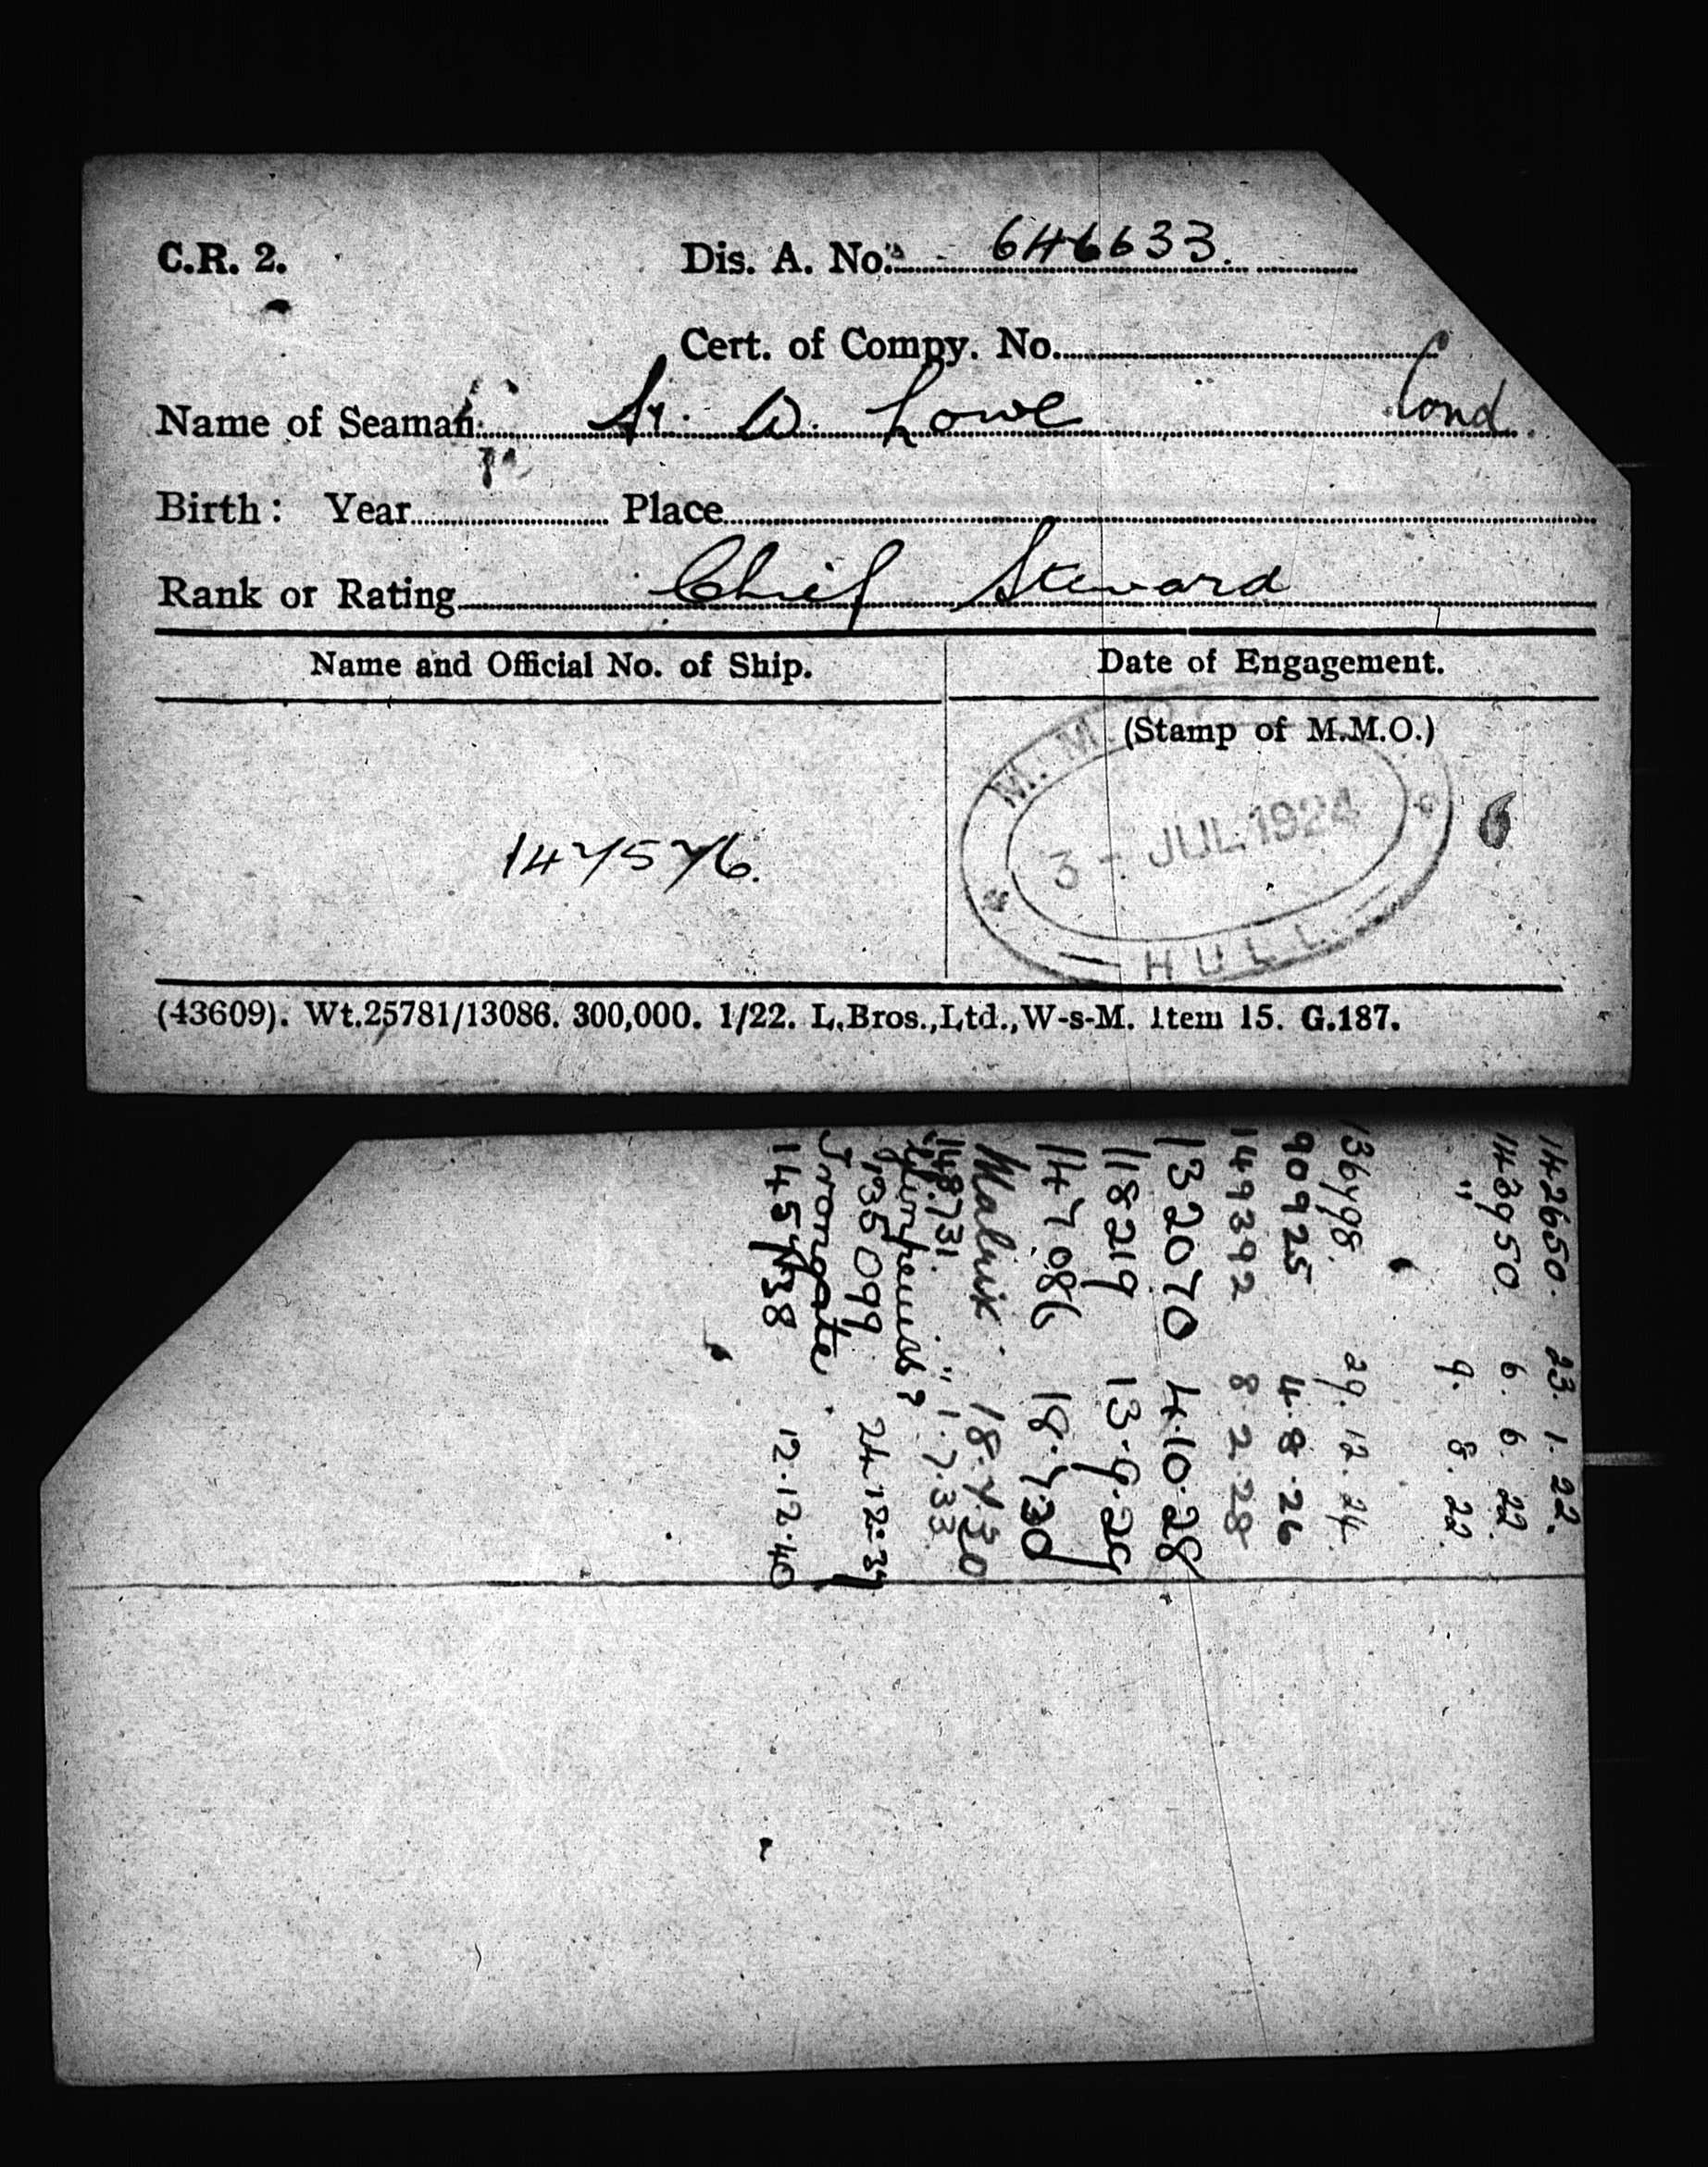 C.R. 2.
Dis. A. No. 646633.
Cert. of Compy. No.
Name of Seaman W. Lowe Cond.
Birth: Year Place
Rank or Rating Chief Steward
Name and Official No. of Ship.
Date of Engagement.
(Stamp of M.M.O.)
147576.
M.M.O.
3 - JUL 1924
HULL
(43609). Wt.25781/13086. 300,000. 1/22. L.Bros.,Ltd.,W-s-M. Item 15. G.187.
142650. 23.1.22.
143950. 6.6.22.
" 9.8.22.
136798. 29.12.24.
90925 4.8.26
149392 8.2.28
132070 4.10.28
118219 13.9.29
147086 18.7.30
Malrix 18.7.30
148731. " 1.7.33
135099 24.12.37
Irongate
145738 12.12.40